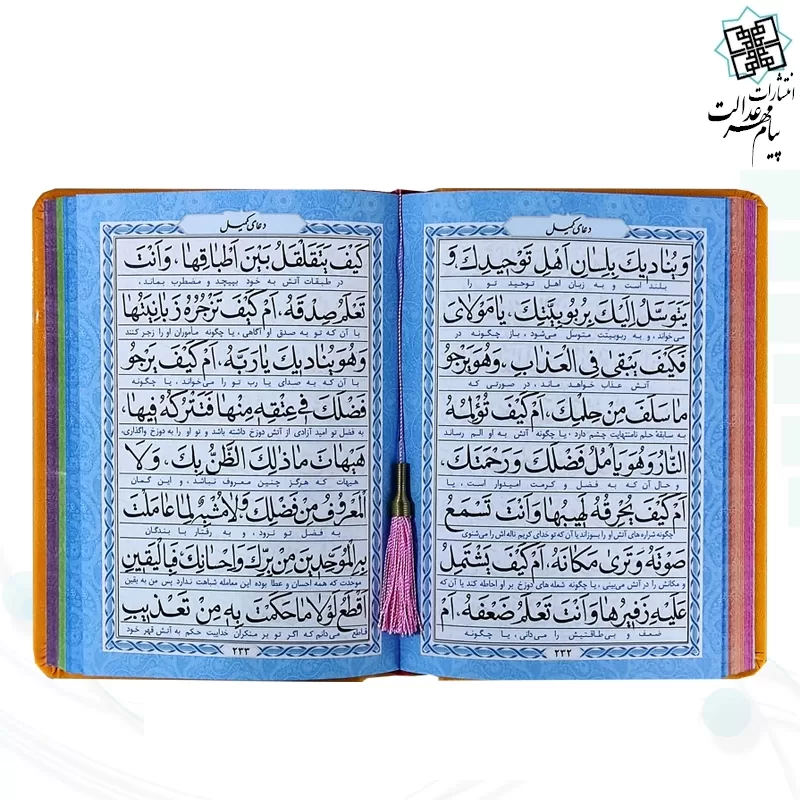 انتشارات
پیام مهر عدالت
دعای کمیل
وَيُنَادِيكَ بِلِسَانِ أَهْلِ تَوْحِيدِكَ وَ
بلند است و به زبان اهل توحید تو را
يَتَوَسَّلُ إِلَيْكَ بِرُبُوبِيَّتِكَ، يَا مَوْلَايَ
می‌خواند، و به ربوبیتت متوسل می‌شود، باز چگونه در
فَكَيْفَ يَبْقَى فِي الْعَذَابِ، وَهُوَ يَرْجُو
آتش عذاب خواهد ماند، در صورتی که
مَا سَلَفَ مِنْ حِلْمِكَ، أَمْ كَيْفَ تُؤْلِمُهُ
به سابقهٔ حلم نامنتهایت چشم دارد، یا چگونه آتش به او الم رساند
النَّارُ وَهُوَ يَأْمُلُ فَضْلَكَ وَرَحْمَتَكَ،
و حال آن که به فضل و کرمت امیدوار است، یا
أَمْ كَيْفَ يُحْرِقُهُ لَهِيبُهَا وَأَنْتَ تَسْمَعُ
چگونه شراره‌های آتش او را بسوزاند با آن که تو خدای کریم ناله‌اش را می‌شنوی
صَوْتَهُ وَتَرَى مَكَانَهُ، أَمْ كَيْفَ يَشْتَمِلُ
و مکانش را در آتش می‌بینی، یا چگونه شعله‌های دوزخ بر او احاطه کند با آن که
عَلَيْهِ زَفِيرُهَا وَأَنْتَ تَعْلَمُ ضَعْفَهُ، أَمْ
ضعف و بی‌طاقتیش را می‌دانی، یا چگونه
۲۳۲
دعای کمیل
كَيْفَ يَتَقَلْقَلُ بَيْنَ أَطْبَاقِهَا، وَأَنْتَ
در طبقات آتش به خود بپیچد و مضطرب بماند،
تَعْلَمُ صِدْقَهُ، أَمْ كَيْفَ تَزْجُرُهُ زَبَانِيَتُهَا
با آن که تو به صدق او آگاهی، یا چگونه مأموران او را زجر کنند
وَهُوَ يُنَادِيكَ يَا رَبَّهُ، أَمْ كَيْفَ يَرْجُو
با آن که به صدای یا رب تو را می‌خواند، یا چگونه
فَضْلَكَ فِي عِتْقِهِ مِنْهَا فَتَتْرُكُهُ فِيهَا،
به فضل تو امید آزادی از آتش دوزخ داشته باشد و تو او را به دوزخ واگذاری،
هَيْهَاتَ مَا ذَلِكَ الظَّنُّ بِكَ، وَلَا
هیهات که هرگز چنین معروف نباشد، و این گمان
الْمَعْرُوفُ مِنْ فَضْلِكَ، وَلَا مُشْبِهٌ لِمَا عَامَلْتَ
به فضل تو نرود، و به رفتار با بندگان
بِهِ الْمُوَحِّدِينَ مِنْ بِرِّكَ وَإِحْسَانِكَ، فَبِالْيَقِينِ
موحدت که همه احسان و عطا بوده این معامله شباهت ندارد پس من به یقین
أَقْطَعُ لَوْلَا مَا حَكَمْتَ بِهِ مِنْ تَعْذِيبِ
قاطع می‌دانم که اگر تو بر منکران خداییت حکم به آتش قهر خود
۲۳۳